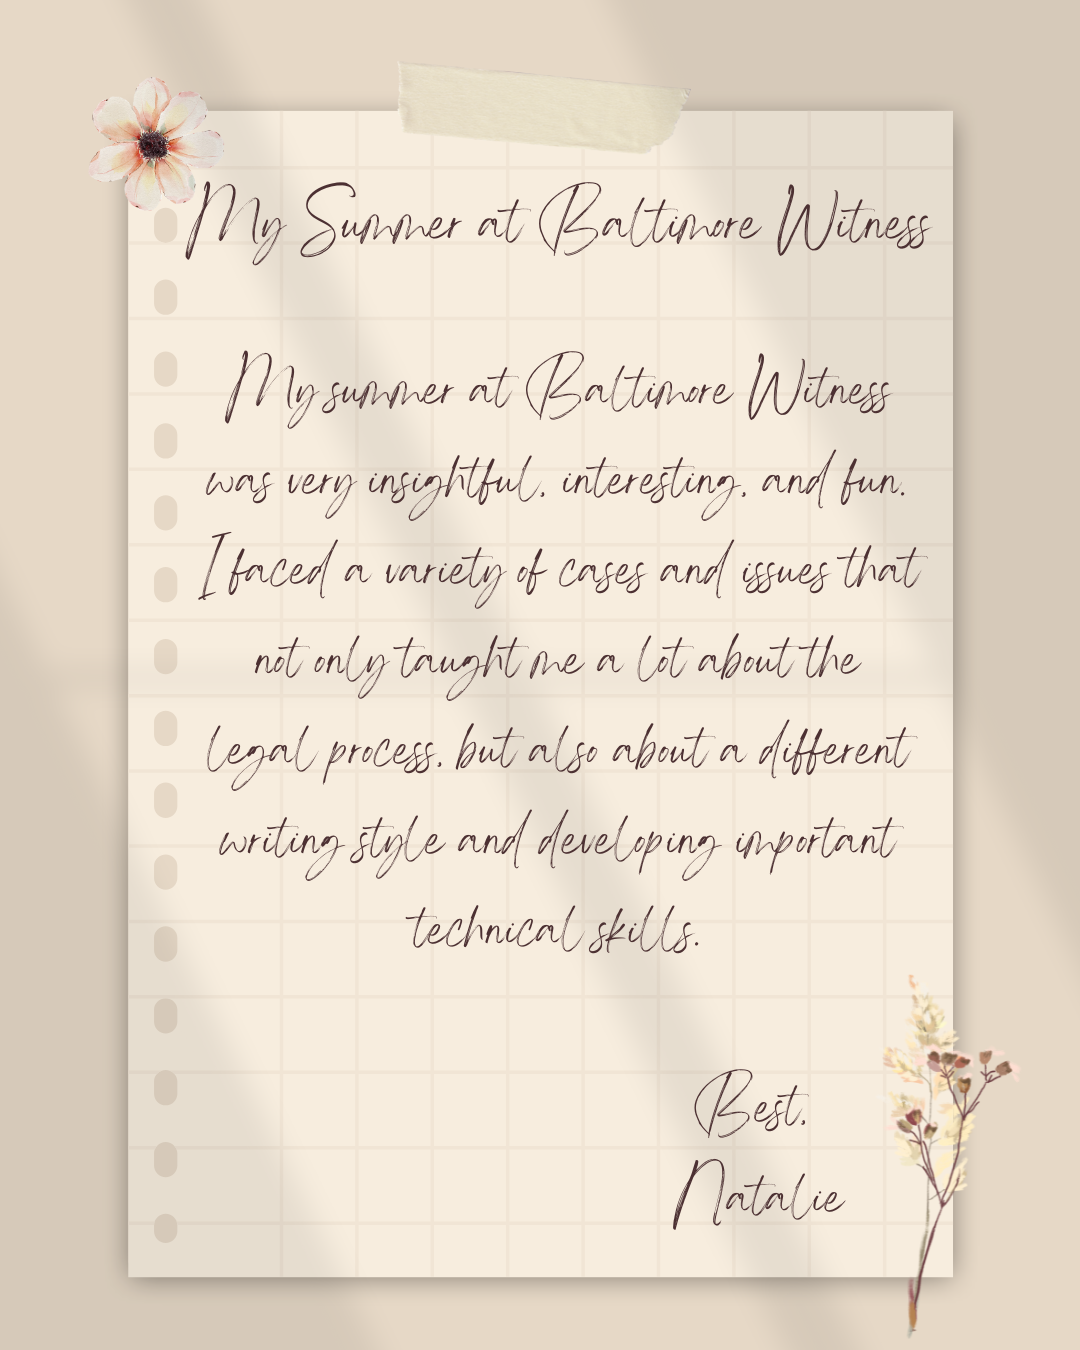 My Summer at Baltimore Witness
My summer at Baltimore Witness
was very insightful, interesting, and fun.
I faced a variety of cases and issues that
not only taught me a lot about the
legal process, but also about a different
writing style and developing important
technical skills.
Best,
Natalie